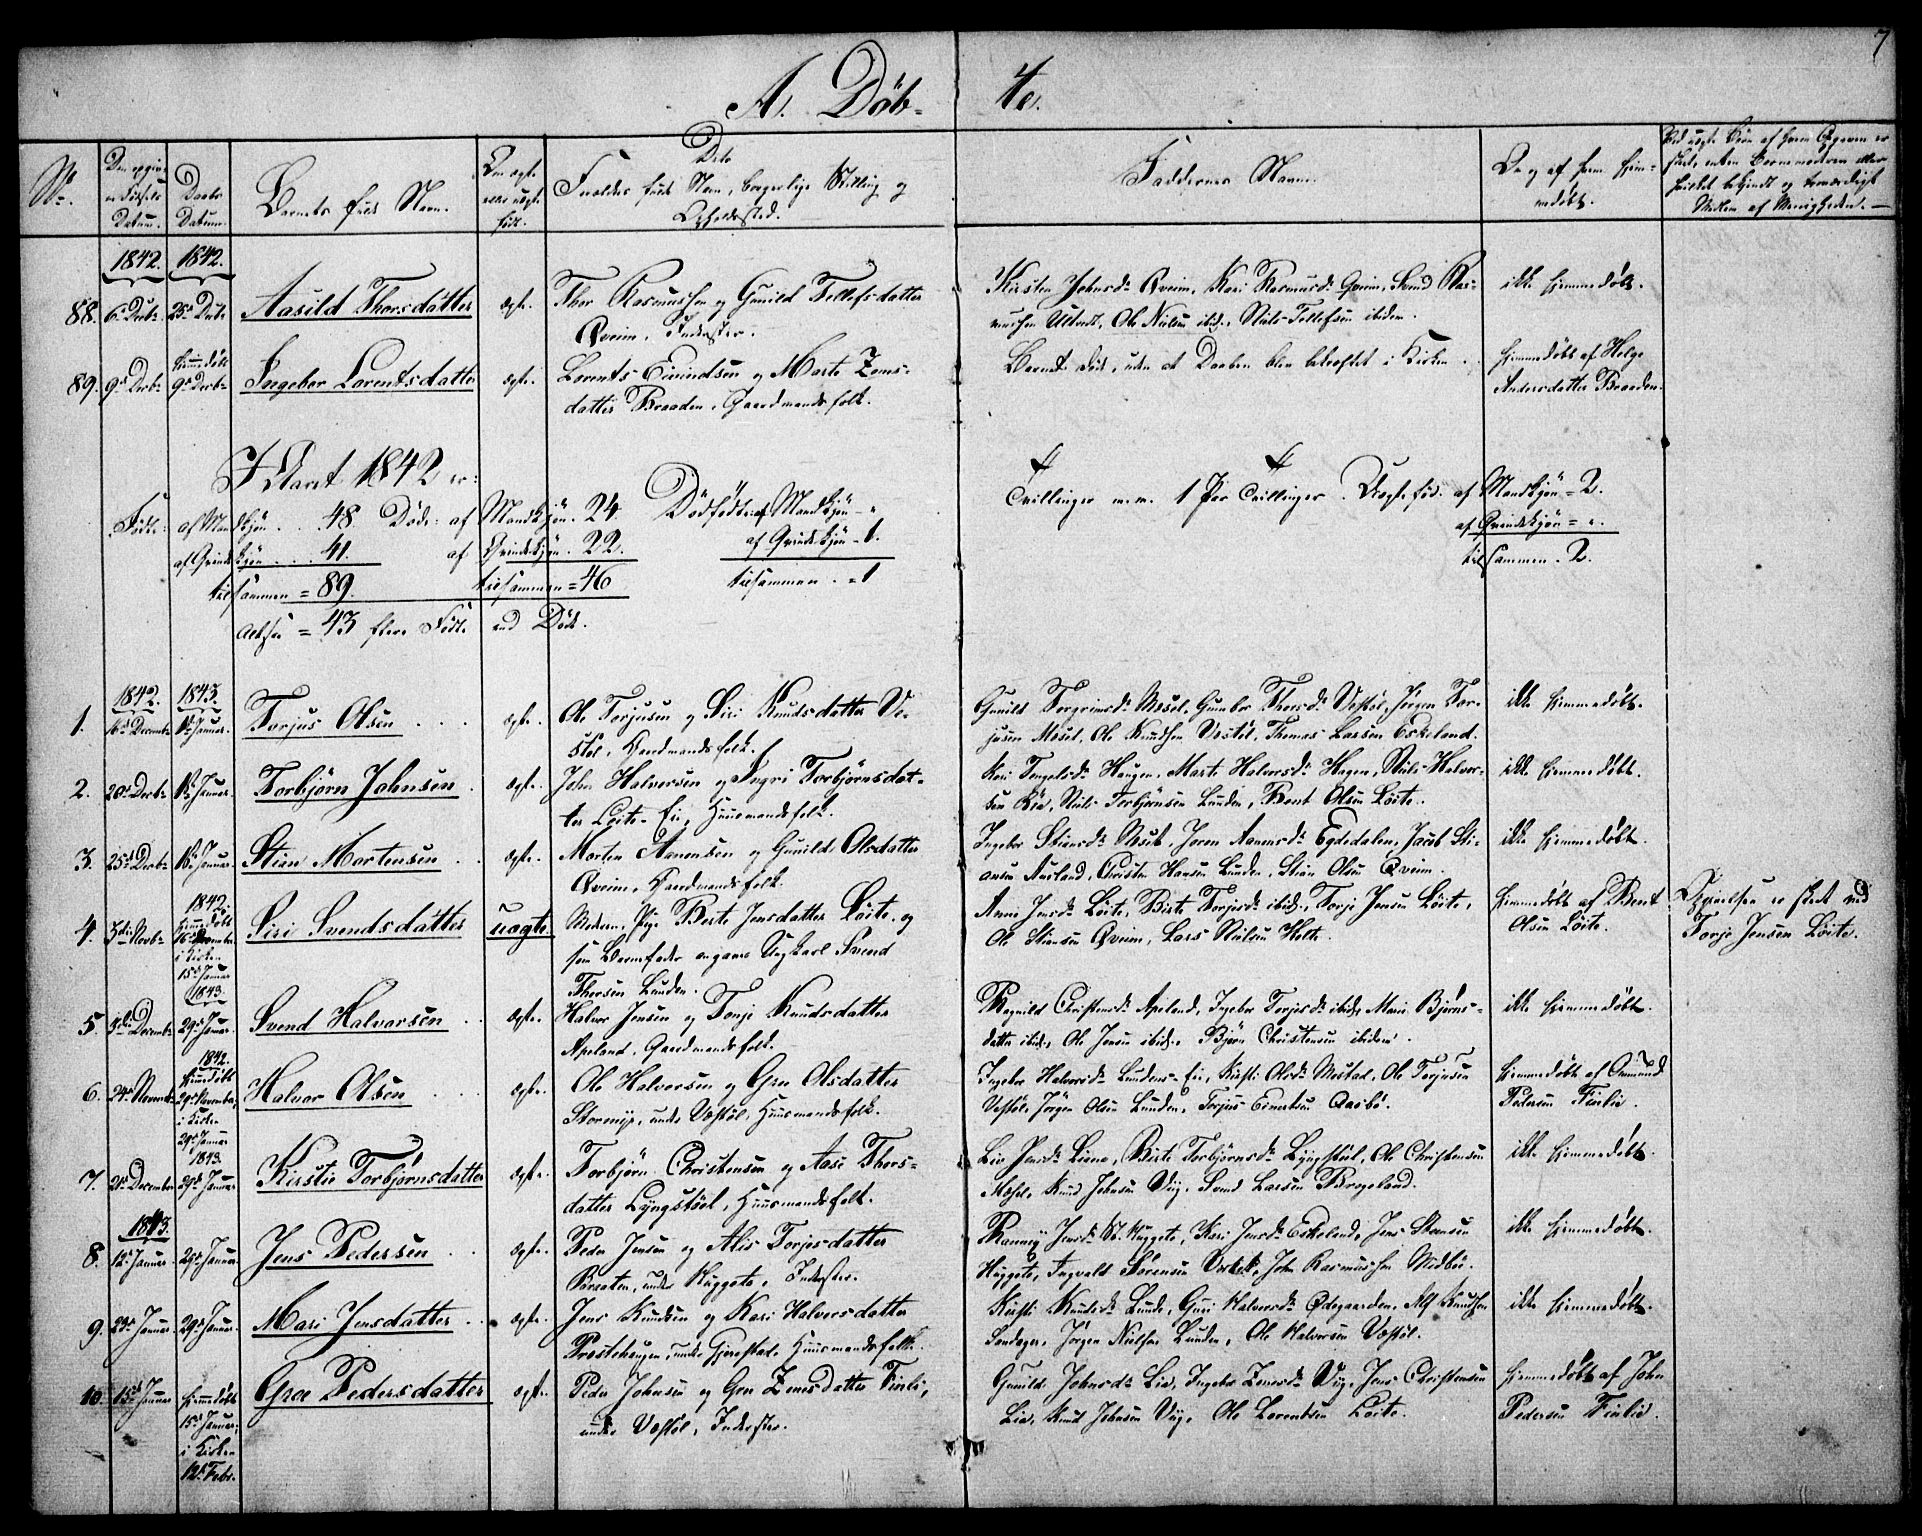 7
A. Døb- te.
No.
Den opgivne Fødsels Datum.
Daabs Datum.
Barnets fulde Navn.
Om ægte eller uægte født.
Dets Forældres fulde Navn, borgerlige Stilling og Opholdssted.
Faddernes Navne.
Om og af hvem hjemmedøbt.
1842. 1842.
88. 6te Decbr 25de Decbr Aasild Thorsdatter ægte. Thor Rasmussen og Gunild Tellefsdatter
Qveim, Inderster.
Kirsten Johnsdr Qveim, Kari Rasmusdr Qveim, Svend Ras-
mussen, Ole Nielsen ibid., Niels Tellefsen ibidem.
ikke hjemmedøbt.
89. 9de Decbr hjemmedøbt 9de Decbr Ingebor Lorentsdatter ægte. Lorents Eivindsen og Marte Zens-
datter Braaden, Gaardmandsfolk.
Barnet døde, uden at Daaben blev bekræftet i Kirken.
hjemmedøbt af Helge
Andersdatter Braaden.
I Aaret 1842 er:
Fødte: af Mandkjøn . . 48 Døde: af Mandkjøn. 24 Dødfødte: af Mandkjøn - "
af Qvindekjøn . . . 41. af Qvindekjøn. 22. af Qvindekjøn - 1.
tilsammen = 89. tilsammen = 46 tilsammen . = 1
altsaa = 43 flere Fødte end Døde.
Trillinger m.m. 1 Par Tvillinger. Uægte fød. af Mandkjøn = 2.
af Qvindekjøn = ".
tilsammen. 2.
1842. 1843.
1. 16de Decembr Januar. Torjus Olsen . . . . ægte. Ole Torjusen og Siri Knudsdatter Ve-
støl, Gaardmandsfolk.
Gunild Torgrimsdr Mosel, Gunbor Thorsdr Vestøl, Jørgen Tor-
jusen Mosel, Ole Knudsen Vestøl, Thomas Larsen Eskeland.
ikke hjemmedøbt.
2. 20de Decbr Januar. Torbjørn Johnsen . ægte. John Halversen og Ingri Torbjørnsdat-
ter Løite-Eie, Huusmandsfolk.
Kari Haugen, Marte Halversdr Hagen, Niels Halver-
sen Lie, Niels Torbjørnsen Lunden, Bent Olsen Løite.
ikke hjemmedøbt.
3. 25de Decbr Januar. Stian Mortensen . . ægte. Morten Aanensen og Gunild Olsdatter
Qveim, Gaardmandsfolk.
Ingebor Stiansdr Mosel, Joren Aanensdr Egdedalen, Jacob Sti-
ansen Aurland, Christen Hansen Lunden, Stian Olsen Qveim.
ikke hjemmedøbt.
4. 3die Novbr 1842. hjemmedøbt November i Kirken 15de Januar Siri Svendsdatter uægte. Moderen, Pige Berte Jensdatter Løite, og
som Barnefader angaves Ungkarl Svend
Thorsen Lunden.
Anne Jensdr Løite, Birte Torjesdr ibid., Torje Jensen Løite,
Ole Stiansen Qveim, Lars Nielsen Holte.
hjemmedøbt af Bent
Olsen Løite.
er skeet ved
Torje Jensen Løite.
1843.
5. 3die Decembr 29de Januar. Svend Halvorsen . . ægte. Halvor Jensen og Tonje Knudsdatter
Apeland, Gaardmandsfolk.
Ragnild Christensdr Apeland, Ingebor Torjesdr ibid., Mari Bjørns-
datter ibid., Ole Jensen ibid., Bjørn Christensen ibidem.
ikke hjemmedøbt.
6. 24de Novembr 1842. hjemmedøbt November, i Kirken 29de Januar Halvor Olsen . . . . ægte. Ole Halversen og Gro Olsdatter
under Vestøl, Huusmandsfolk.
Ingebor Halversdr Lundens-Eie, Kirsti Olsdr Mostad, Ole Torjusen
Vestøl, Jørgen Olsen Lunden, Torjus Einertsen Aasbø.
hjemmedøbt af Omund
Pedersen Finlie.
1843.
7. December Januar Kirstie Torbjørnsdatter ægte. Torbjørn Christensen og Aase Thors-
datter Lyngstøl, Huusmandsfolk.
Liv Jensdr Liene, Birte Torbjørnsdr Lyngstøl, Ole Christensen
Mosel, Knud Johnsen Viig, Svend Larsen Brogeland.
ikke hjemmedøbt.
1843.
8. 12te Januar. Januar. Jens Pedersen . . . ægte. Peder Jensen og Alis Torjesdatter
Braaten, under Huggote, Inderster.
Ranneij Jensdr St. Huggote, Kari Jensdr Eskeland, Jens Steensen
Huggote, Ingvald Sørensen, John Rasmussen Midbøe.
ikke hjemmedøbt.
9. Januar 29de Januar. Mari Jensdatter . . ægte. Jens Knudsen og Kari Halversdatter
Præstehaugen, under Gjerestad, Huusmandsfolk.
Kirsti Knudsdr Lunde, Guri Halversdr Ødegaarden, Alf Knudsen
Sandager, Jørgen Nielsen Lunden, Ole Halversen Vestøl.
ikke hjemmedøbt.
10. 15de Januar hjemmedøbt 15de Januar, i Kirken 12te Febr. Groe Pedersdatter ægte. Peder Johnsen og Gro Zensdatter Finli,
under Vestøl, Inderster.
Gunild Johnsdr Lie, Ingebor Zensdr Viig, Jens Christensen
Lie, Knud Johnsen Viig, Ole Lorentsen Løite.
hjemmedøbt af John
Pedersen Finlie.